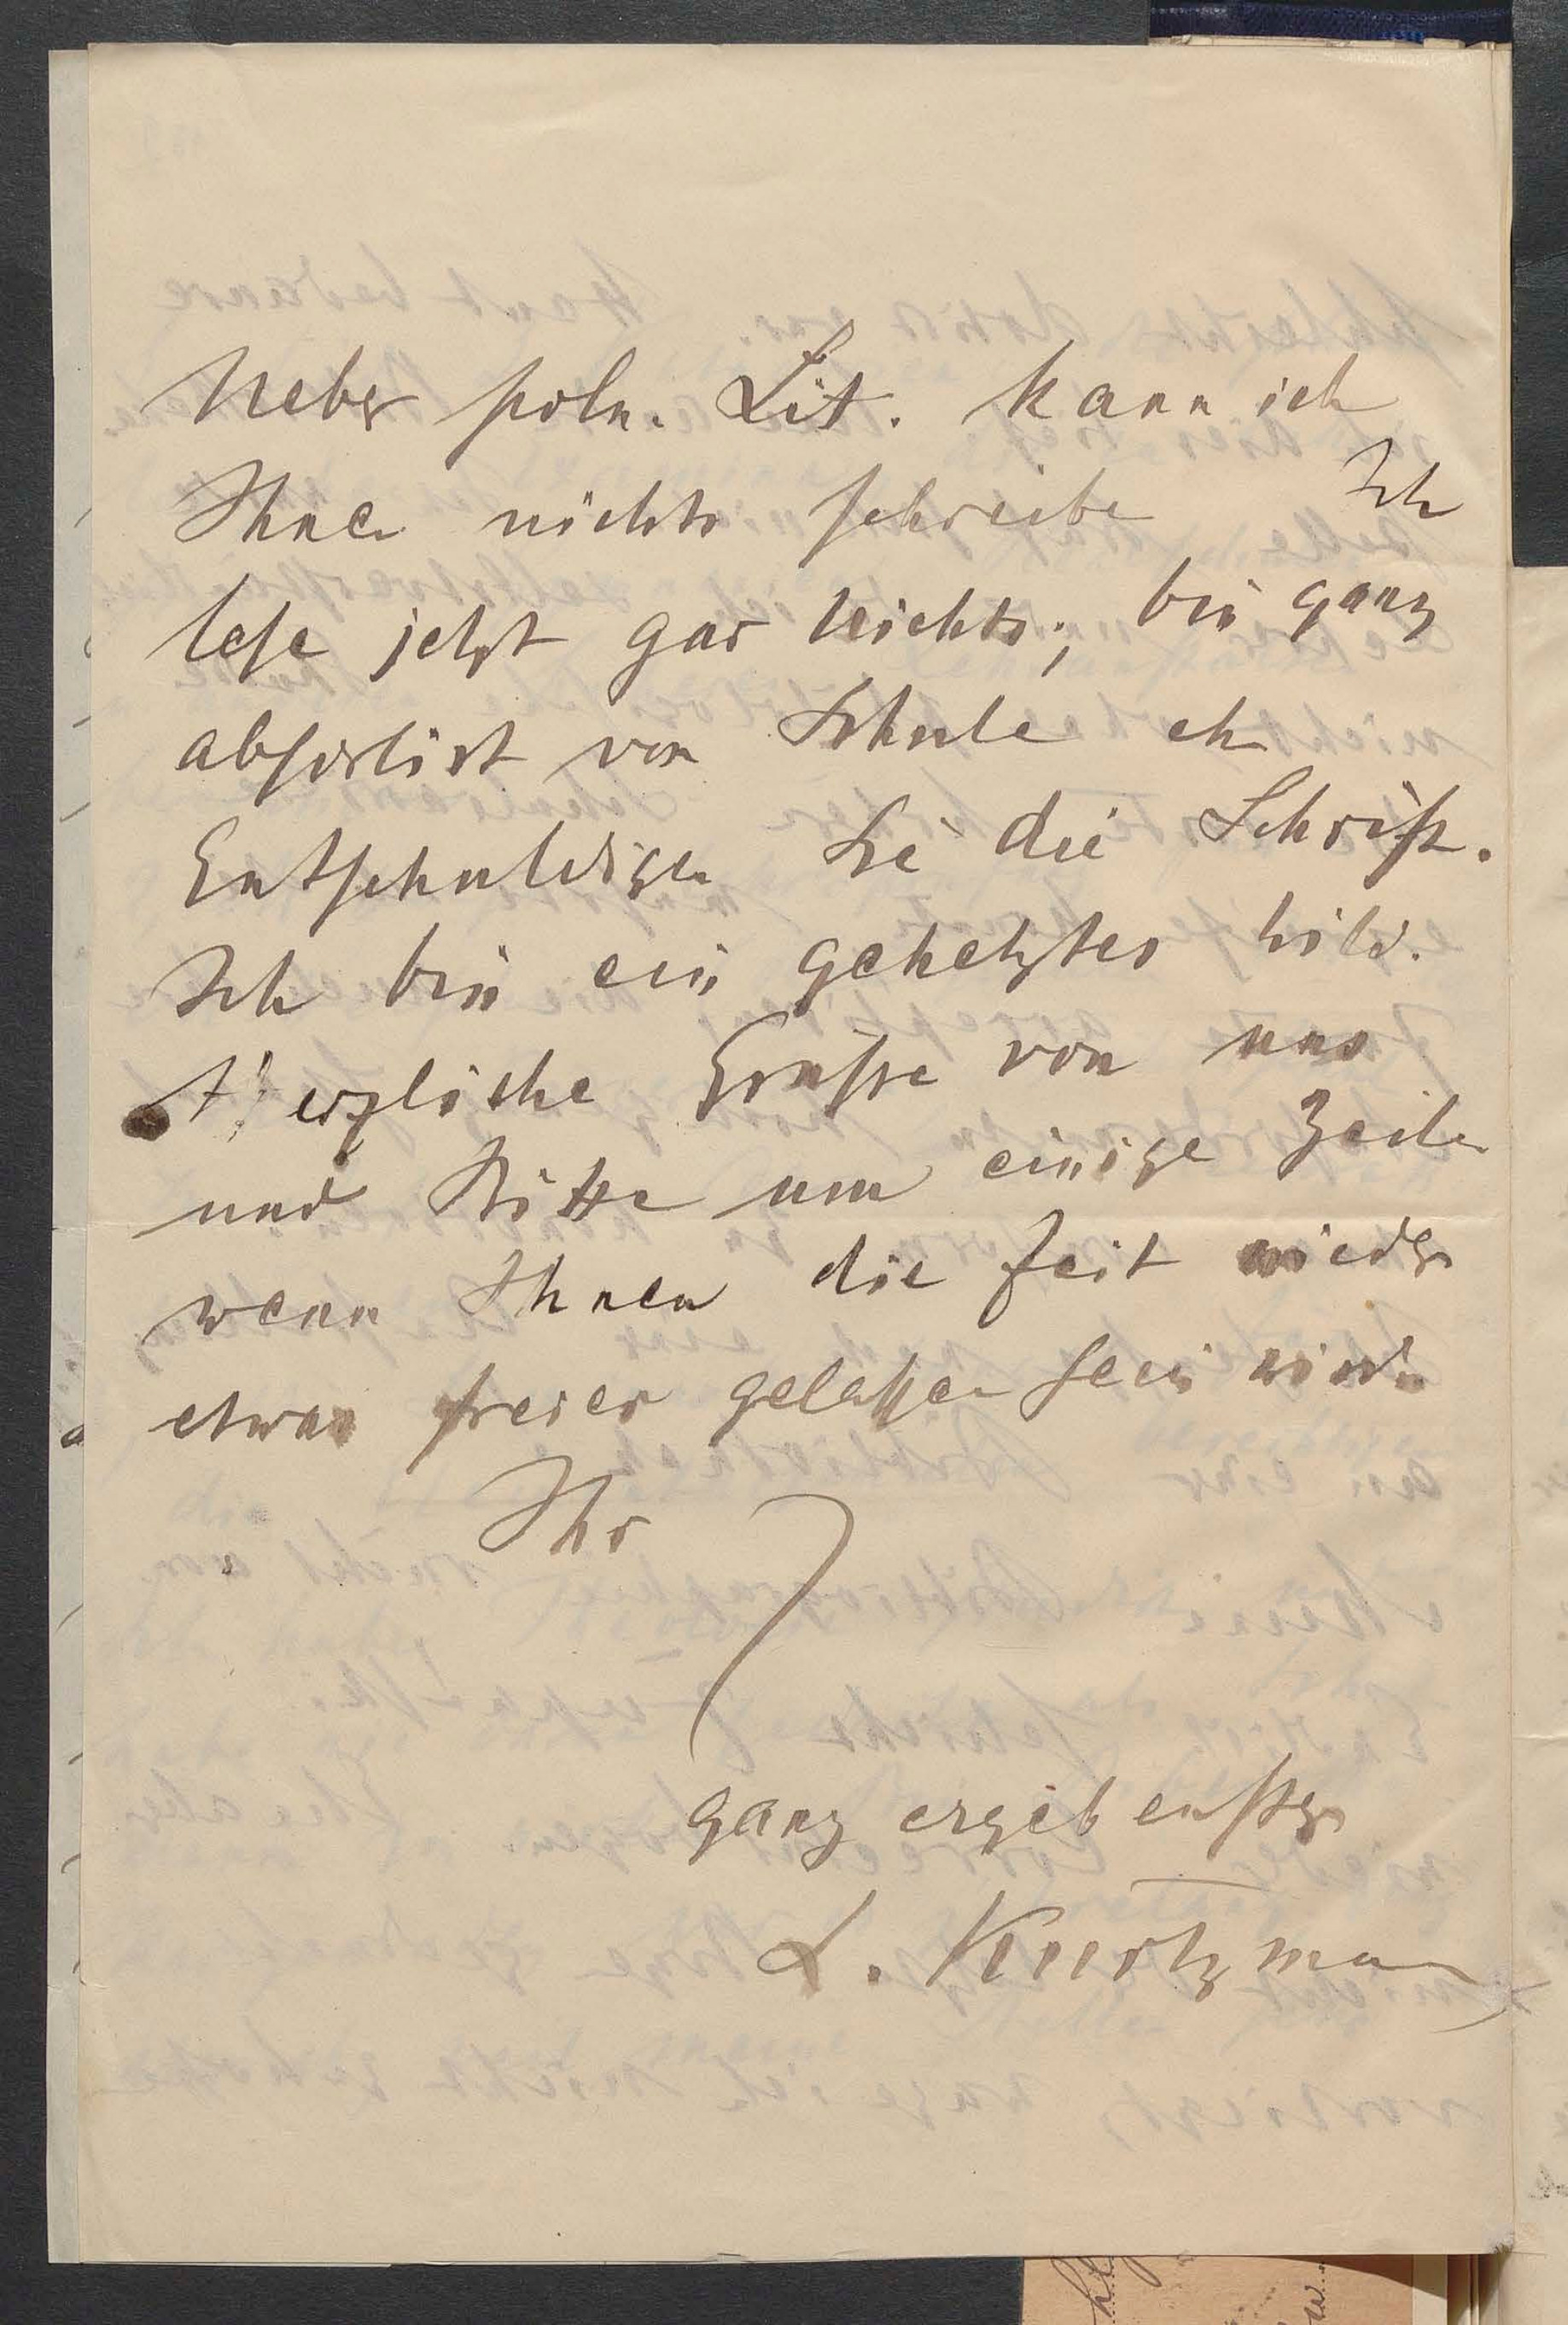 Ueber poln. Lit. kann ich
Ihnen nichts schreiben Ich
lese jetzt gar nichts; bin ganz
absorbirt von Schule etc
Entschuldigen Sie die Schrift.
Ich bin ein gehetztes Wild.
Herzliche Grüsse von uns
und Bitte um einige Zeilen
wenn Ihnen die Zeit wieder
etwas freier gelassen sein wird.
Ihr
ganz ergebenster
L. Kurtzmann